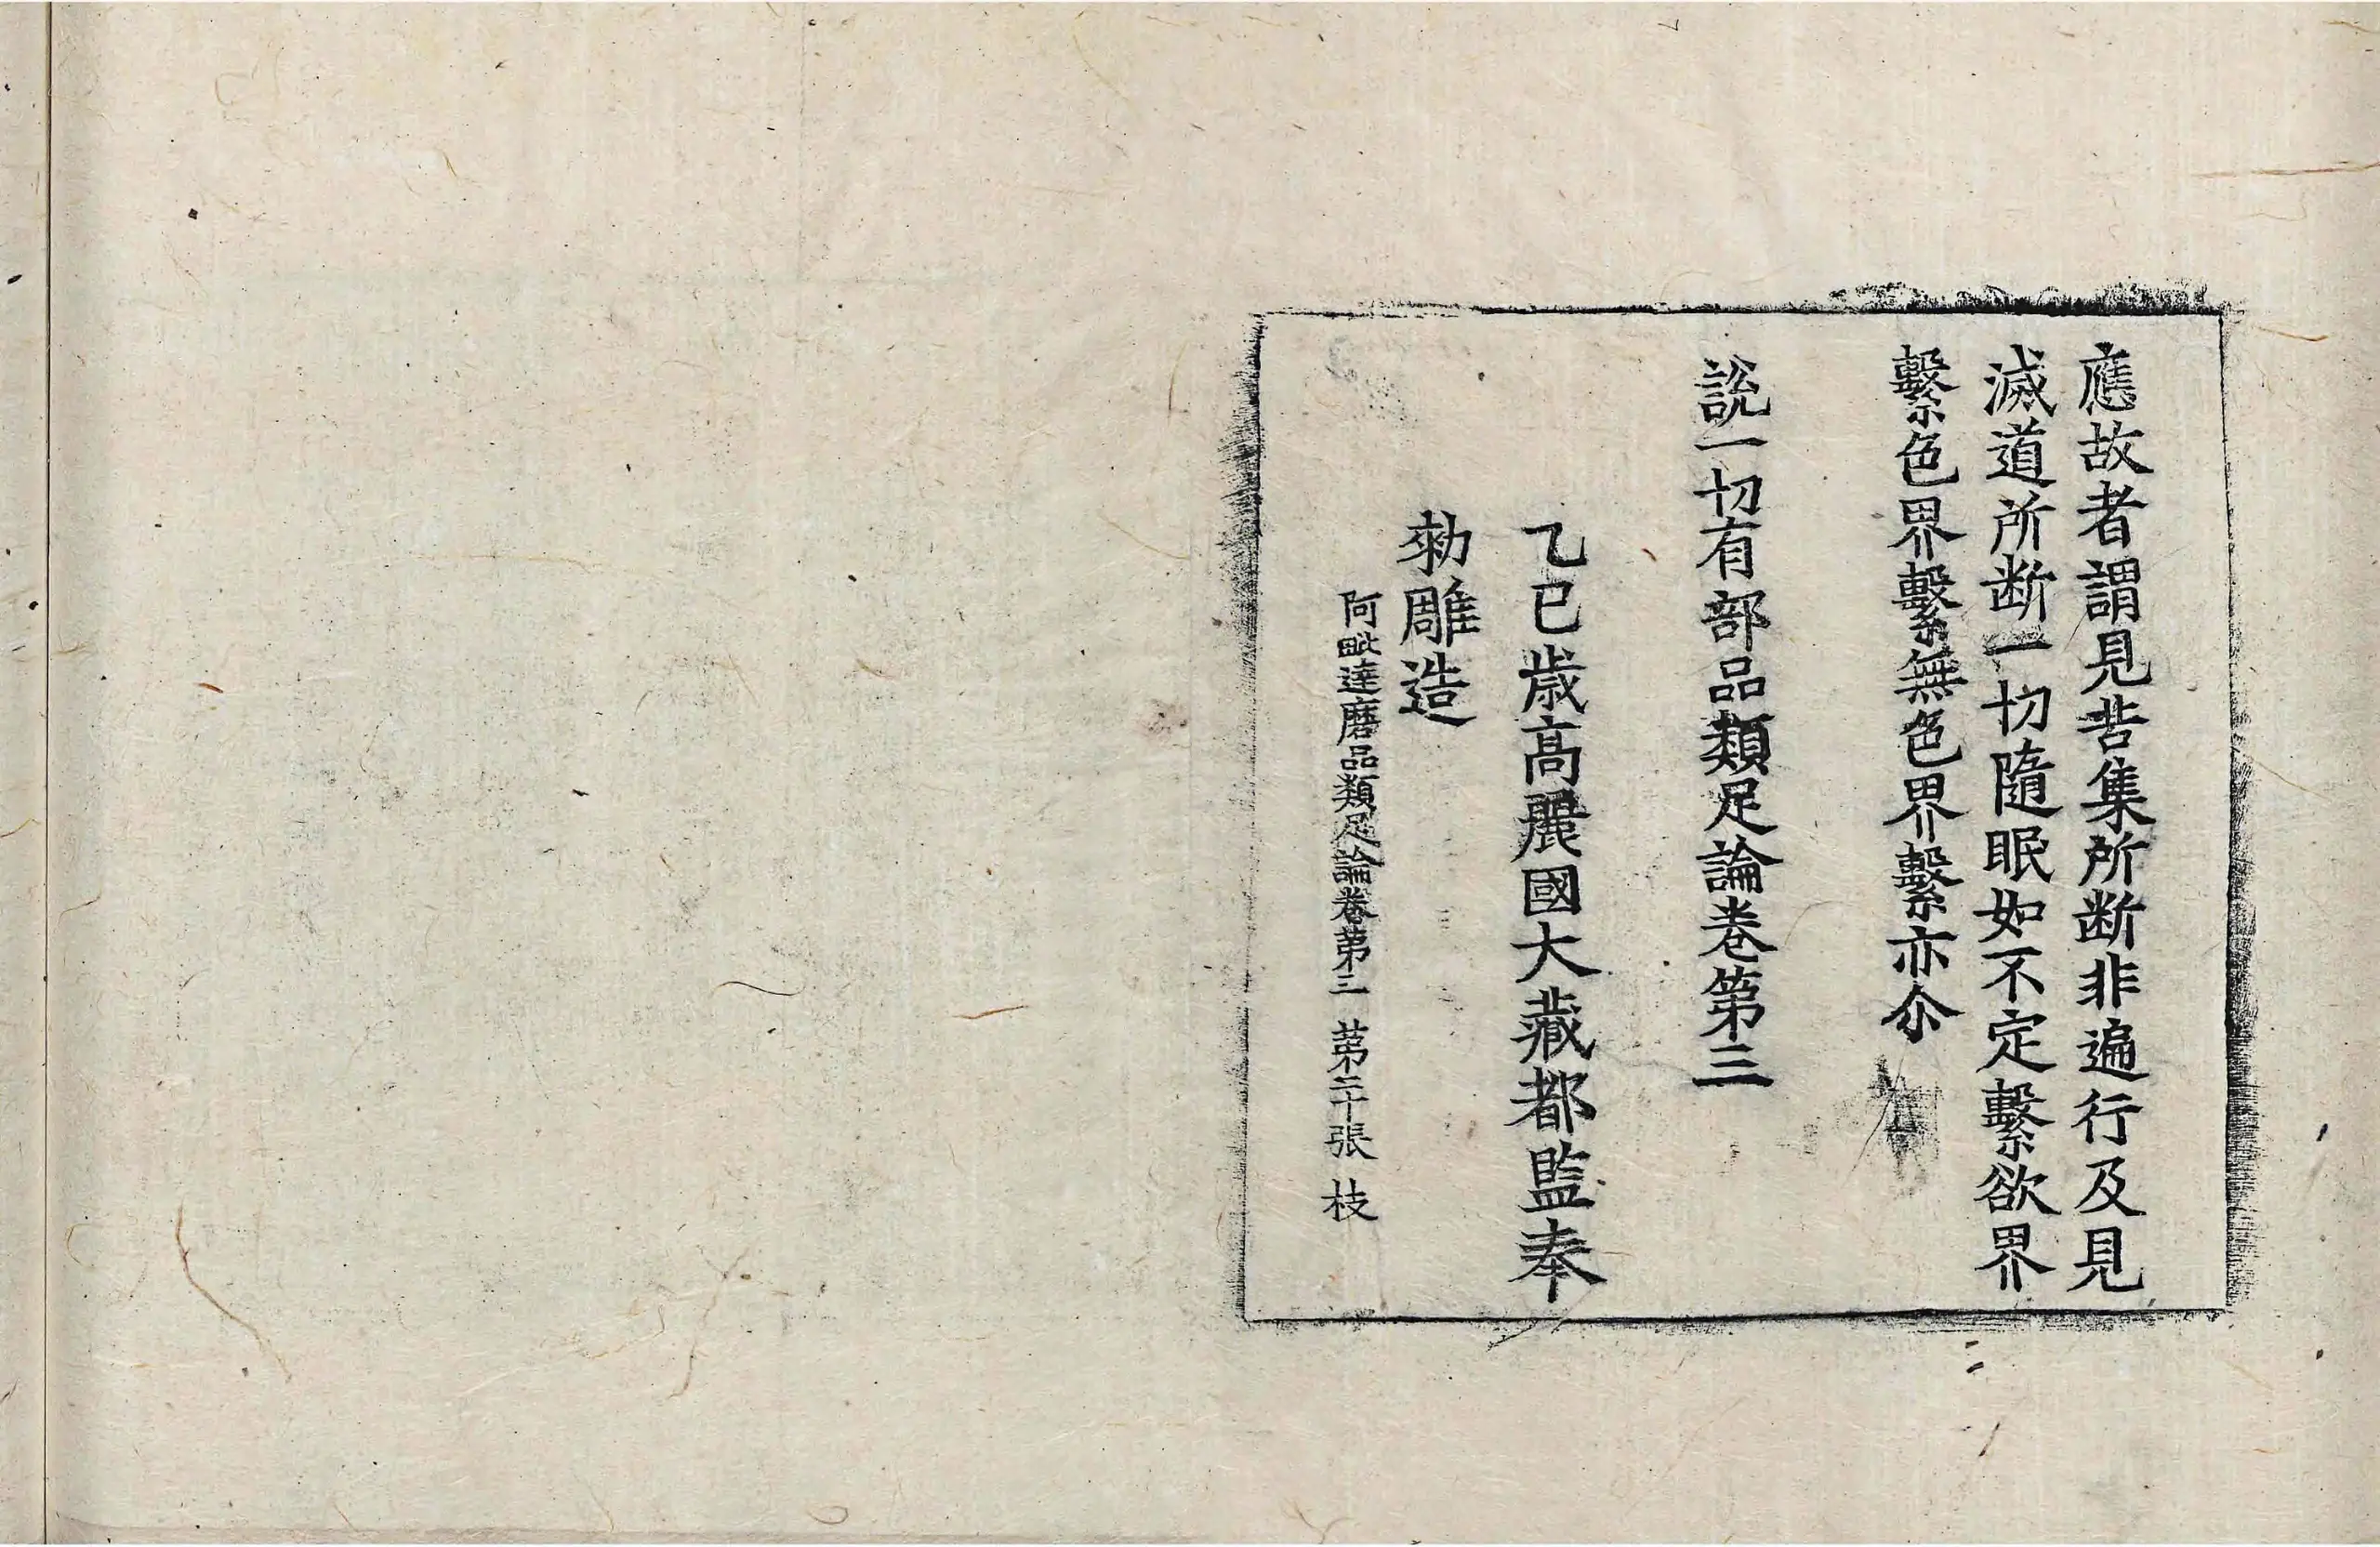 應故者謂見苦集所断非遍行及見
滅道所断一切隨眠如不定繫欲界
繫色界繫無色界繫亦尒
說一切有部品類足論卷第三
乙巳歳高麗國大藏都監奉
勑雕造
阿毗達磨品類足論卷第三 第二十張 枝